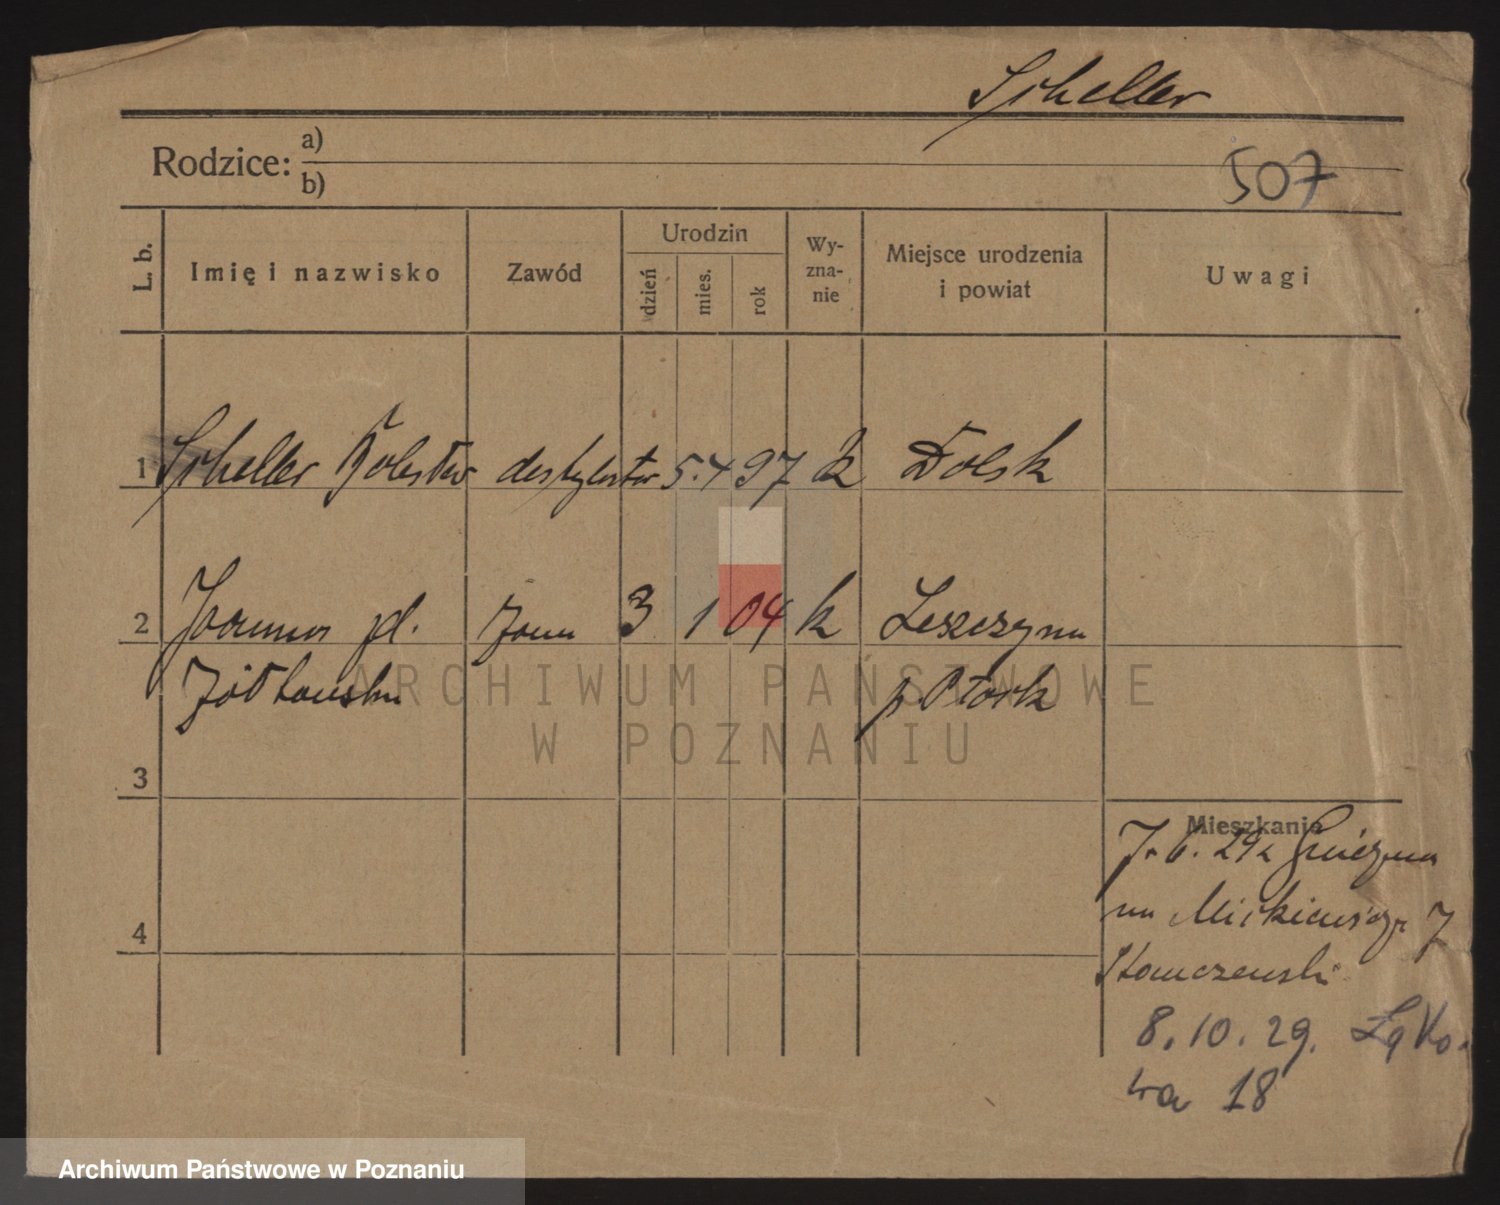 Scheller
Rodzice: a)
b)
507
L. b. Imię i nazwisko Zawód Urodzin dzień mies. rok Wy-zna-nie Miejsce urodzenia i powiat Uwagi
1 Scheller Bolesław destylator 5. 4 97 k Dolsk
2 Joanna zd. żona 3 1 04 k Leszczyna
Żółtowska p. Płock
3
Mieszkanie
7. 6. 29 z Gniezna
na Mickiewicza 7
4
8. 10. 29. Łąko-
wa 18
ARCHIWUM PAŃSTWOWE
W POZNANIU
Archiwum Państwowe w Poznaniu